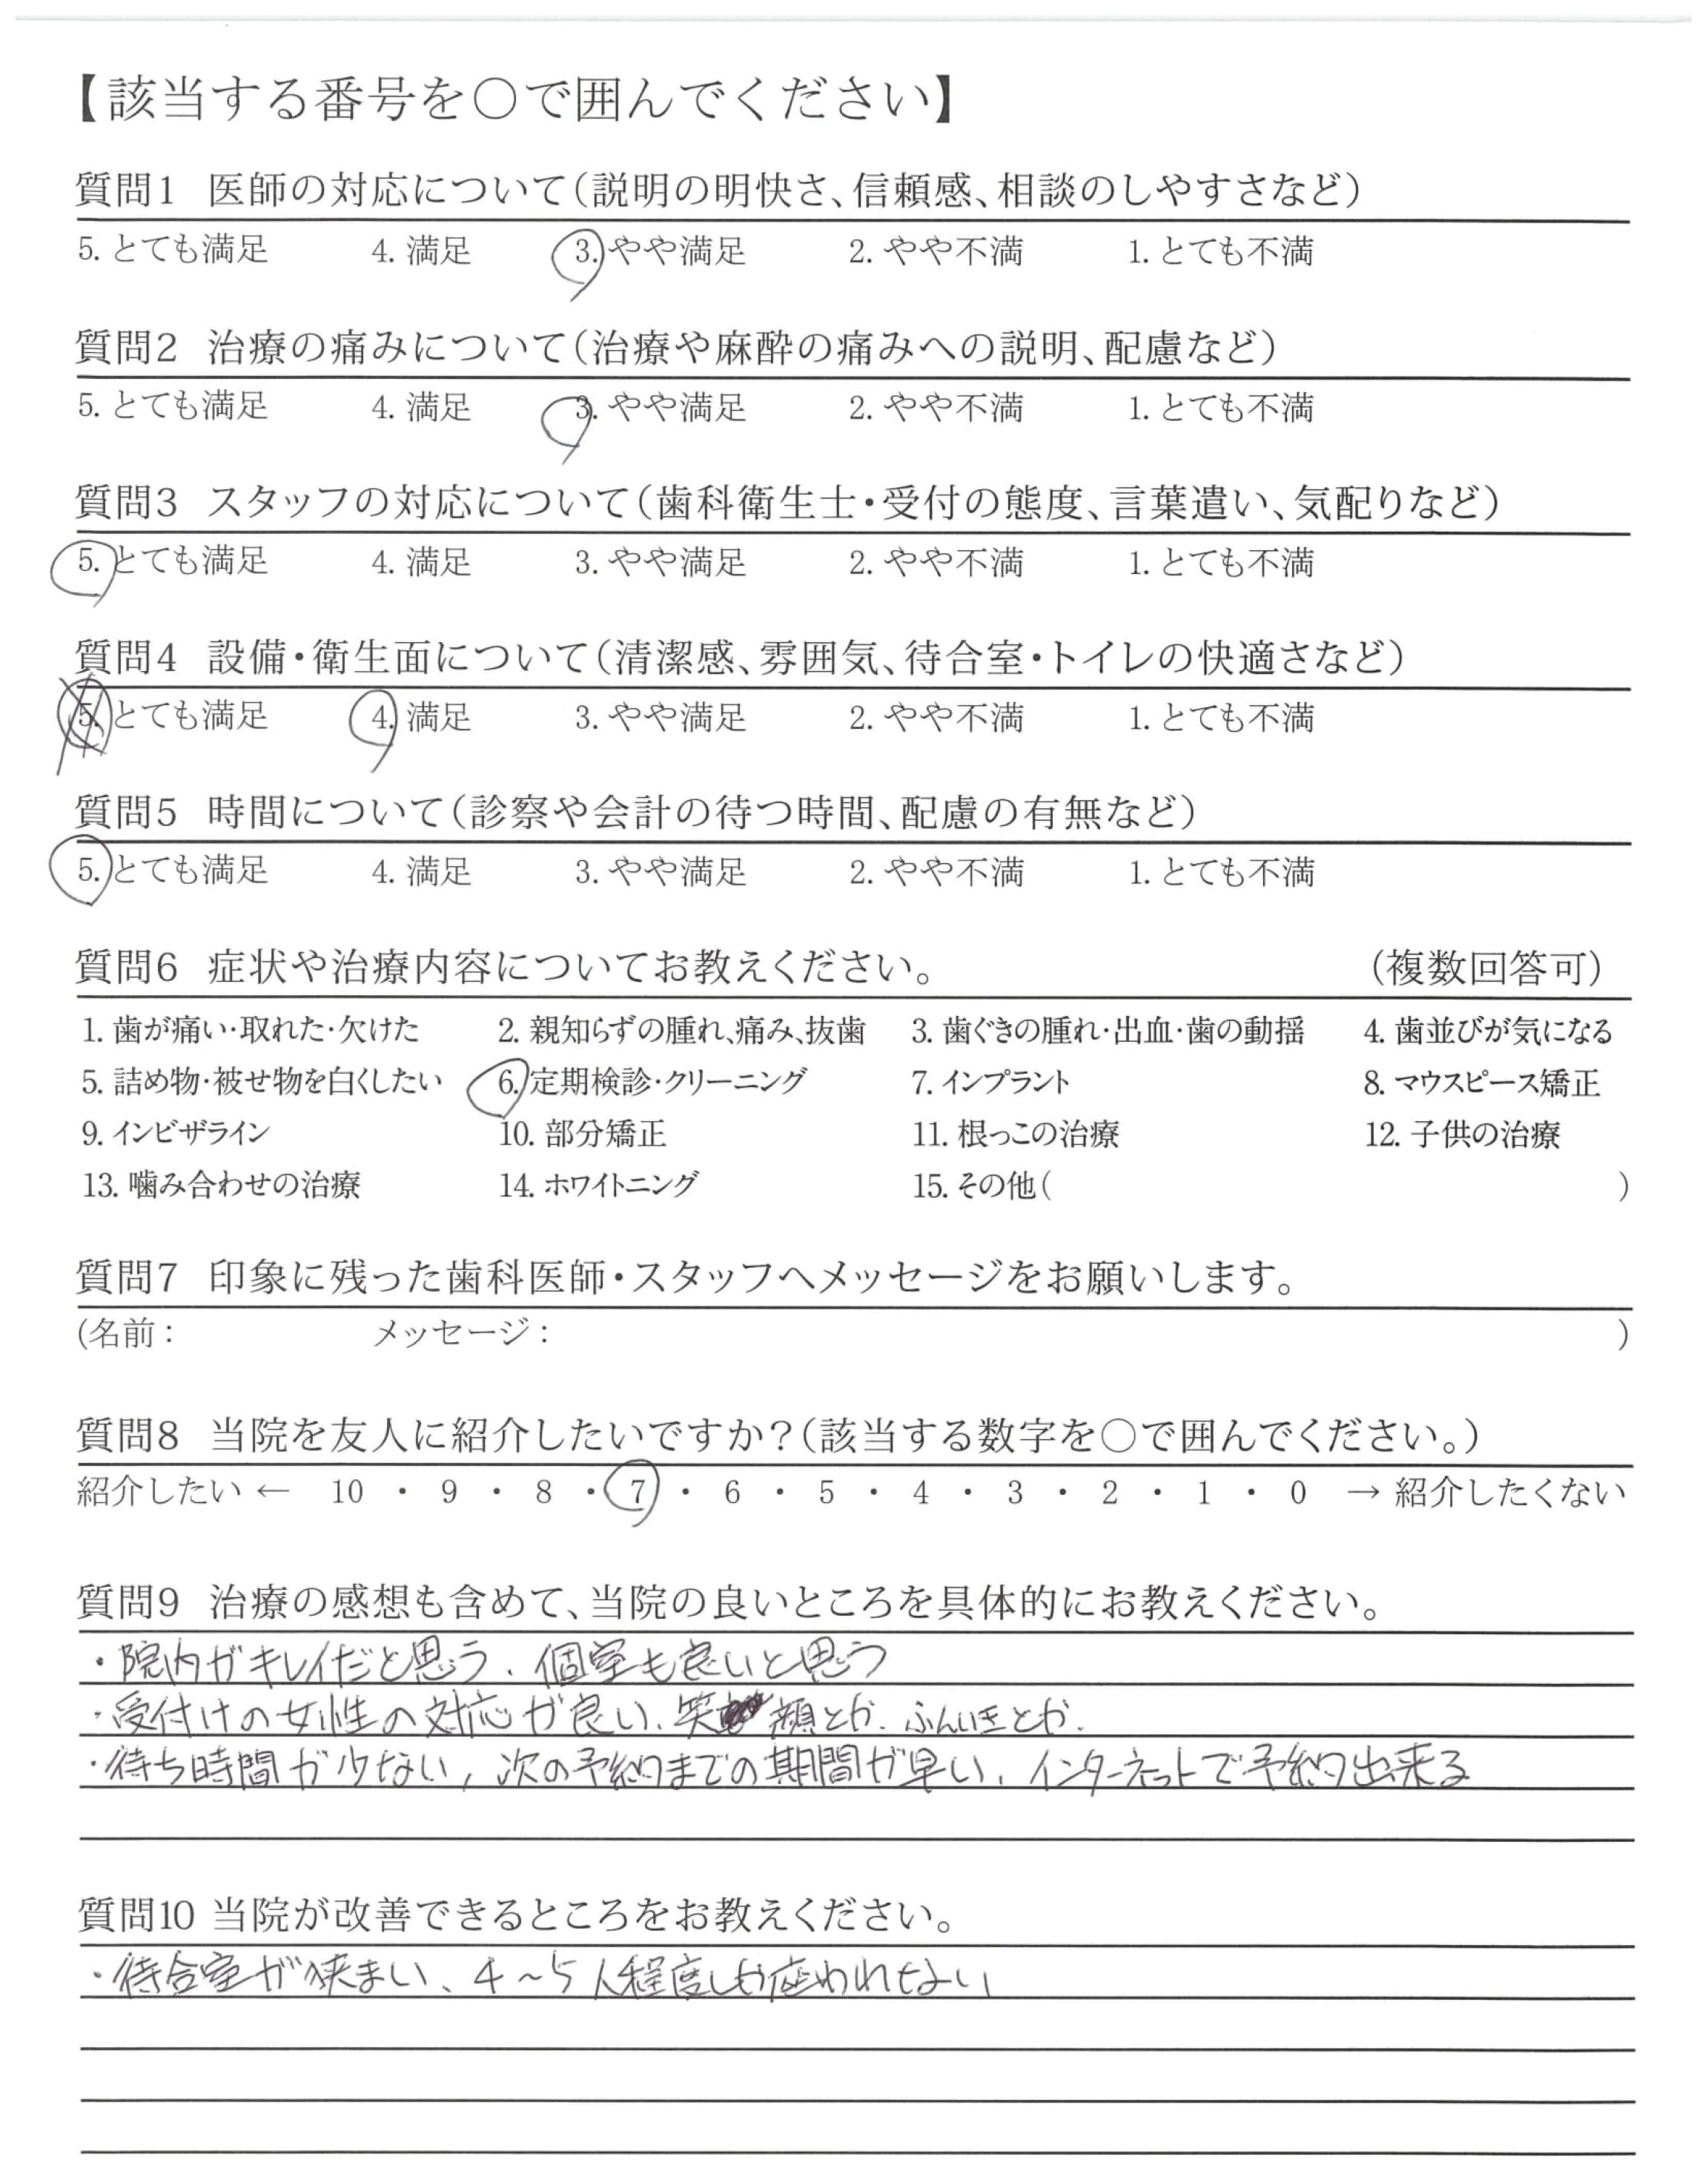 【該当する番号を○で囲んでください】
質問1 医師の対応について(説明の明快さ、信頼感、相談のしやすさなど)
5. とても満足 4. 満足 3. やや満足 2. やや不満 1. とても不満
質問2 治療の痛みについて(治療や麻酔の痛みへの説明、配慮など)
5. とても満足 4. 満足 3. やや満足 2. やや不満 1. とても不満
質問3 スタッフの対応について(歯科衛生士・受付の態度、言葉遣い、気配りなど)
5. とても満足 4. 満足 3. やや満足 2. やや不満 1. とても不満
質問4 設備・衛生面について(清潔感、雰囲気、待合室・トイレの快適さなど)
5. とても満足 4. 満足 3. やや満足 2. やや不満 1. とても不満
質問5 時間について(診察や会計の待つ時間、配慮の有無など)
5. とても満足 4. 満足 3. やや満足 2. やや不満 1. とても不満
質問6 症状や治療内容についてお教えください。 (複数回答可)
1. 歯が痛い・取れた・欠けた 2. 親知らずの腫れ、痛み、抜歯 3. 歯ぐきの腫れ・出血・歯の動揺 4. 歯並びが気になる
5. 詰め物・被せ物を白くしたい 6. 定期検診・クリーニング 7. インプラント 8. マウスピース矯正
9. インビザライン 10. 部分矯正 11. 根っこの治療 12. 子供の治療
13. 噛み合わせの治療 14. ホワイトニング 15. その他( )
質問7 印象に残った歯科医師・スタッフへメッセージをお願いします。
(名前: メッセージ: )
質問8 当院を友人に紹介したいですか?(該当する数字を○で囲んでください。)
紹介したい ← 10 ・ 9 ・ 8 ・ 7 ・ 6 ・ 5 ・ 4 ・ 3 ・ 2 ・ 1 ・ 0 → 紹介したくない
質問9 治療の感想も含めて、当院の良いところを具体的にお教えください。
・院内がキレイだと思う、個室も良いと思う
・受付けの女性の対応が良い、笑顔とか、ふんいきとか、
・待ち時間が少ない、次の予約までの期間が早い、インターネットで予約出来る
質問10 当院が改善できるところをお教えください。
・待合室が狭まい、4~5人程度しか座われない